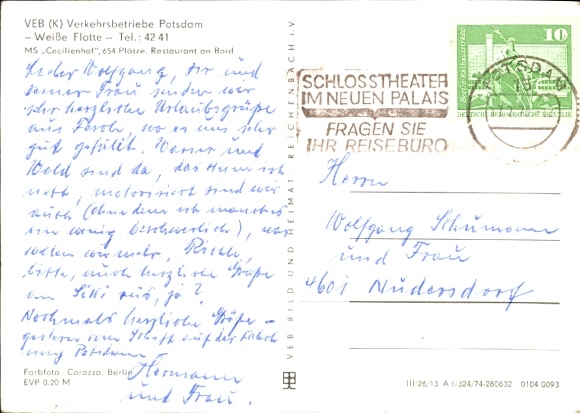 VEB (K) Verkehrsbetriebe Potsdam
– Weiße Flotte – Tel.: 42 41
MS „Cecilienhof“, 654 Plätze, Restaurant an Bord
Lieber Wolfgang, Dir und
Deiner Frau senden wir
sehr herzliche Urlaubsgrüße
aus Ferch, wo es uns sehr
gut gefällt. Wasser und
Wald sind da, das Heim ist
nett, motorisiert sind wir
auch (ohne dem ist manches
ein wenig beschwerlich), was
wollen wir mehr. Richte,
bitte, auch herzliche Grüße
an aus, ja?
Nochmals herzliche Grüße –
gestern vom Schiff auf der Fahrt
Potsdam
Hermann
und Frau.
Farbfoto Carazza, Berlin
EVP 0,20 M
VEB BILD UND HEIMAT REICHENBACH i. V.
SCHLOSSTHEATER
IM NEUEN PALAIS
FRAGEN SIE
IHR REISEBÜRO
POTSDAM
10
DEUTSCHE DEMOKRATISCHE REPUBLIK
Herrn
Wolfgang Schumann
und Frau
4601 Nudersdorf
III/26/13 A I/324/74-280632 0104 0093